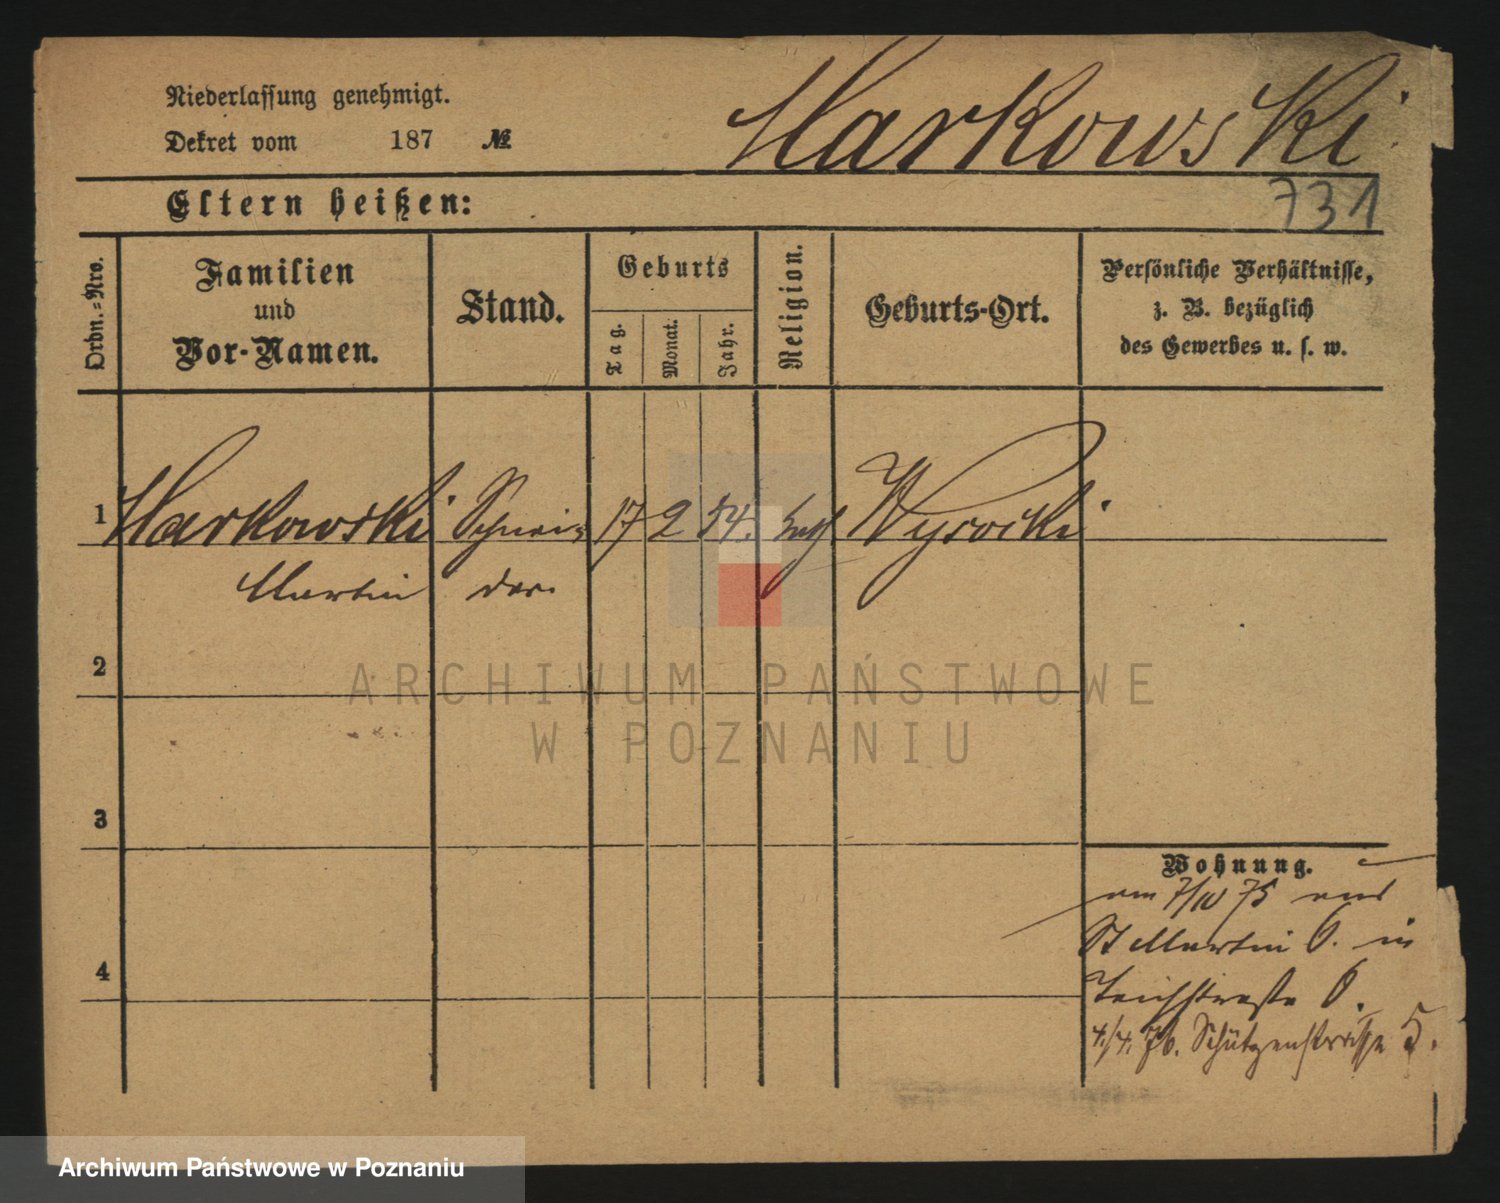 Niederlassung genehmigt.
Dekret vom 187 №
Markowski
Eltern heißen:
731
Ordn.-Nro.
Familien
und
Vor-Namen.
Stand.
Geburts
Tag.
Monat.
Jahr.
Religion.
Geburts-Ort.
Persönliche Verhältnisse,
z. B. bezüglich
des Gewerbes u. s. w.
1 Markowski Schnei= 17 2 54. kath Wysocki
Martin der.
2
ARCHIWUM PAŃSTWOWE
W POZNANIU
3
Wohnung.
am 7/IV 75 aus
St Martin 6. in
4
Teichstraße 6.
4./4. 76. Schützenstraße 5.
Archiwum Państwowe w Poznaniu